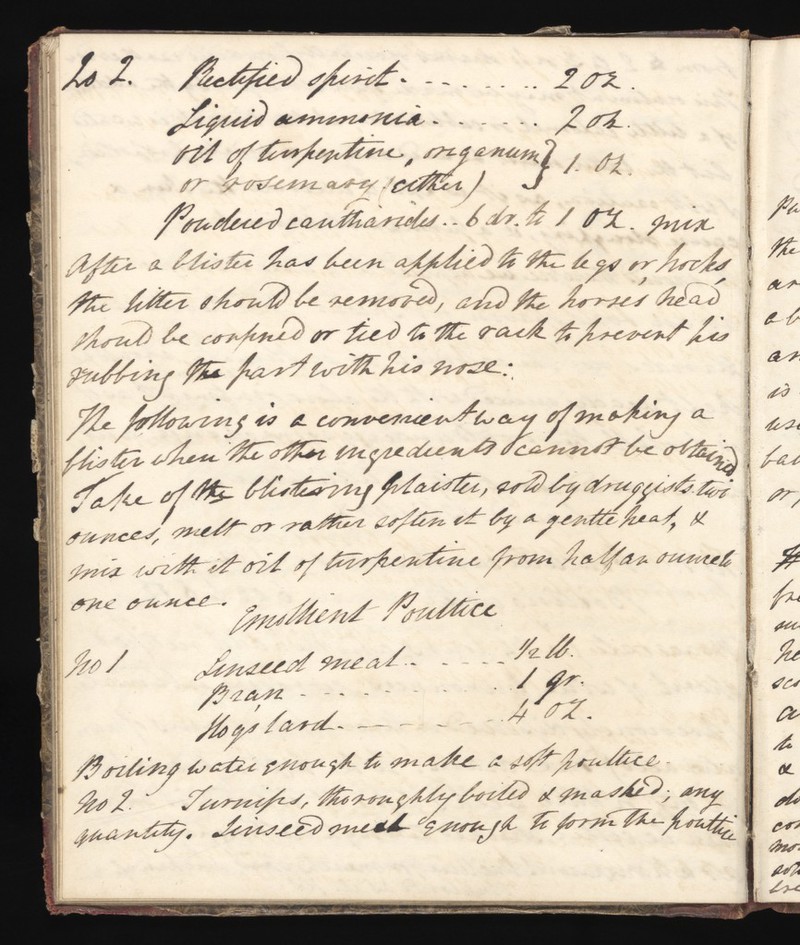 No 2. Rectified spirit. - - - - - - - .. 2 oz.
Liquid ammonia. - - - - . . . 2 oz.
Oil of turpentine, origanum } 1. oz.
or rosemary (either)
Powdered cantharides.. 6 dr. to 1 oz. mix
After a blister has been applied to the legs or hocks,
the litter should be removed, and the horse's head
should be confined or tied to the rack to prevent his
rubbing the part with his nose:.
The following is a convenient way of making a
blister when the other ingredients cannot be obtained
Take of the blistering plaister, sold by druggists two
ounces, melt or rather soften it by a gentle heat, &
mix with it oil of turpentine from half an ounce to
one ounce.
Emollient Poultice
No 1 Linseed meal. . - - - - - ½ lb.
Bran - - - - - - - - - - . 1 qr.
Hogs lard. - - - - - - . . 4 oz.
Boiling water enough to make a soft poultice.
No 2. Turnips, thoroughly boiled & mashed; any
quantity. Linseed meal enough to form the poultice
the
is
to
&